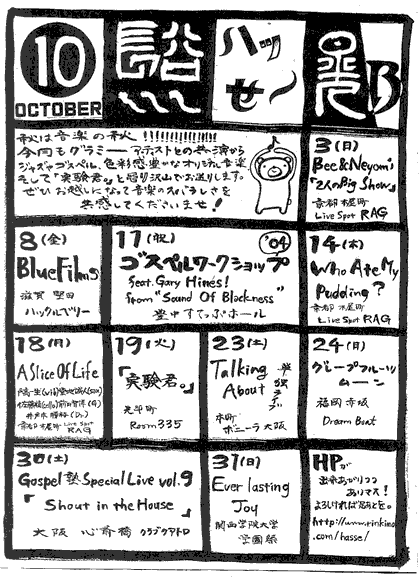 10
OCTOBER
ハッ
せ
秋は音楽の秋!!!!!!!!!!!!!!!
今月もグラミーアーティストとの共演から
ジャズ、ゴスペル、色彩感豊かなオリジナル音楽
そして「実験君。」と盛り沢山でお送りします。
ぜひお越しになって音楽のスバラしさを
共感してくださいませ!
3(日)
Bee&Neyomi's
「2人のBig Show」
京都 木屋町
Live Spot RAG
8(金)
Blue Films
滋賀 堅田
ハックルベリー
11(祝)
'04
ゴスペルワークショップ
feat. Gary Hines!
from "Sound Of Blackness"
豊中 すてっぷホール
14(木)
Who Ate My
Pudding?
京都 木屋町
Live Spot RAG
18(月)
A Slice Of Life
Live Spot
RAG
19(火)
「実験君。」
Room335
23(土)
Talking
About
単独ライブ
本町
ボニーラ 大阪
24(日)
グレープフルーツ
ムーン
福岡 赤坂
Dream Boat
30(土)
Gospel塾 Special Live vol.9
「Shout in the House」
大阪 心斎橋 クラブクアトロ
31(日)
Ever lasting
Joy
関西学院大学
学園祭
HPが
出来あがりつつ
ありマス!
http://www.rinkino
.com/hasse/